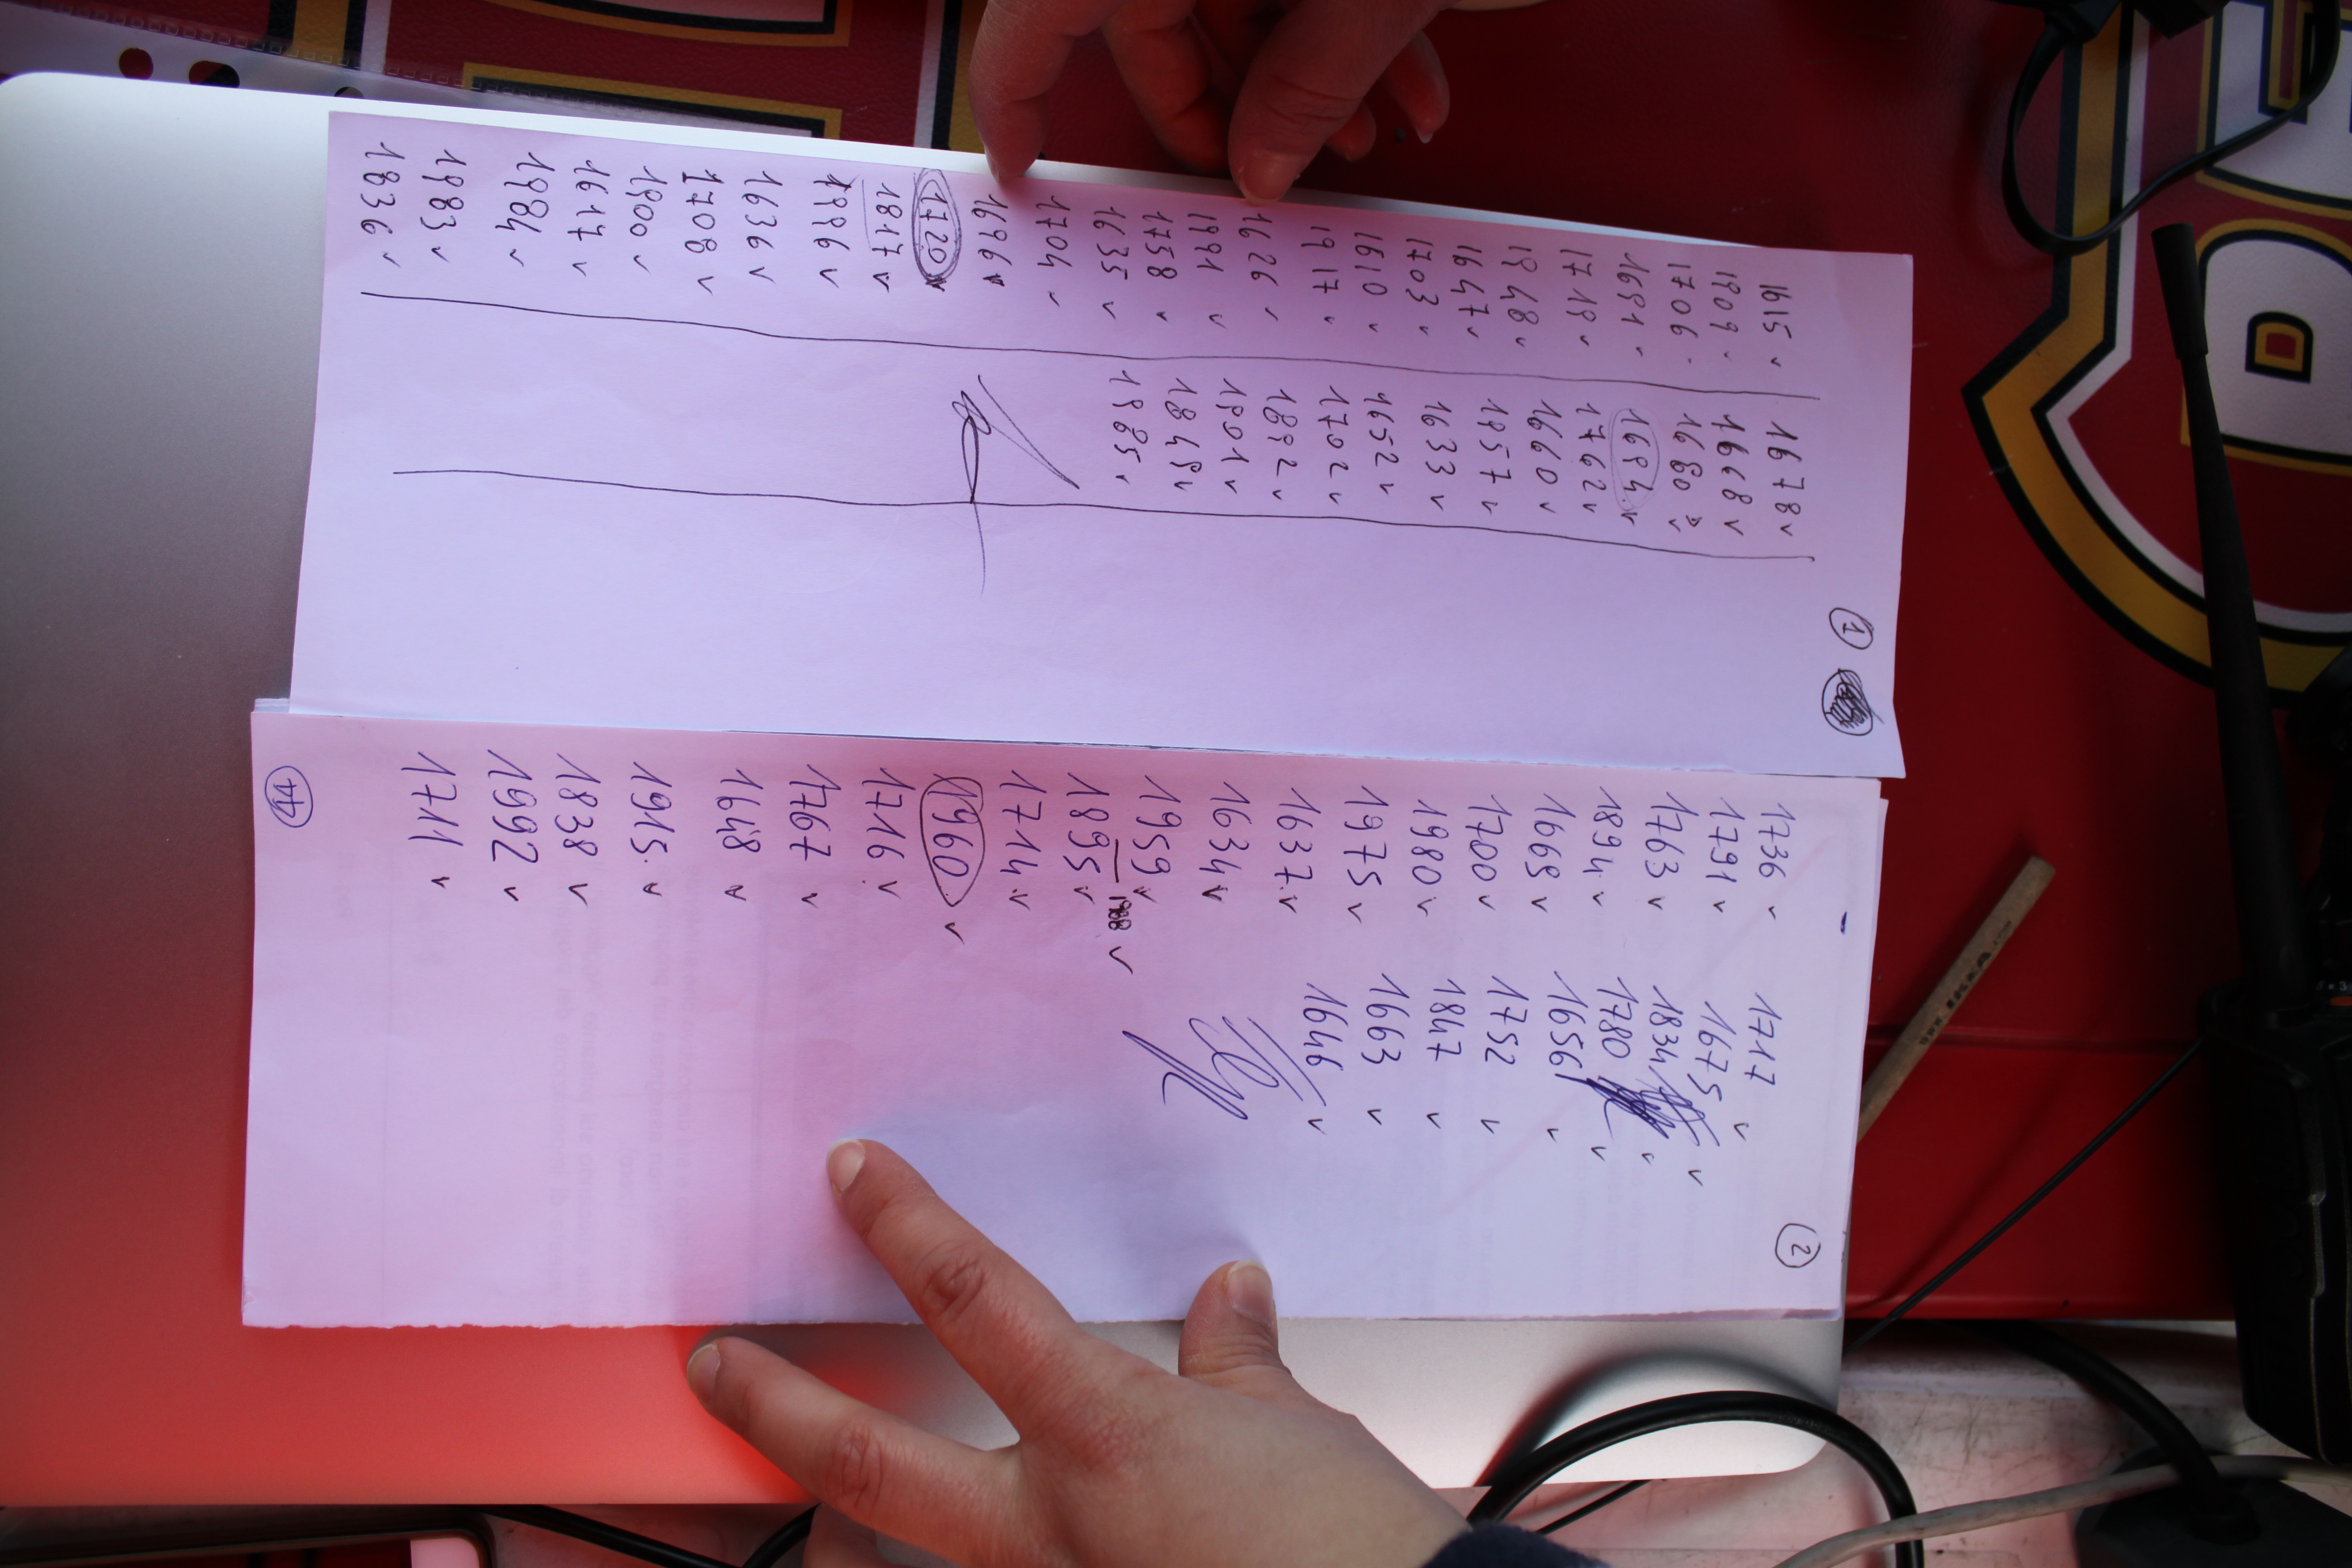 1
1615 v
1909 v
1706
1691 v
1719 v
1948 v
1647 v
1703 v
1610 v
1917 v
1626 v
1991 v
1758 v
1635 v
1704 v
1696 v
1720
1817 v
1996 v
1636 v
1708 v
1900 v
1617 v
1984 v
1983 v
1836 v
1678 v
1668 v
1680 v
1694 v
1762 v
1660 v
1957 v
1633 v
1652 v
1702 v
1892 v
1901 v
1849 v
1985 v
2
1736 v
1791 v
1763 v
1894 v
1665 v
1700 v
1980 v
1975 v
1637 v
1634 v
1959 v
1988 v
1895 v
1714 v
1960 v
1716 v
1767 v
1648 v
1915 v
1838 v
1992 v
1711 v
1717 v
1675 v
1834 v
1780 v
1656 v
1752 v
1847 v
1663 v
1646 v
44
D
IKEA